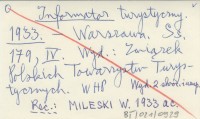 Informator turystyczny.
1933. – Warszawa. Ss.
179, IV. Wyd.: Związek
Polskich Towarzystw Turys-
tycznych. WHP
Rec.: MILESKI W. 1933 a.c.